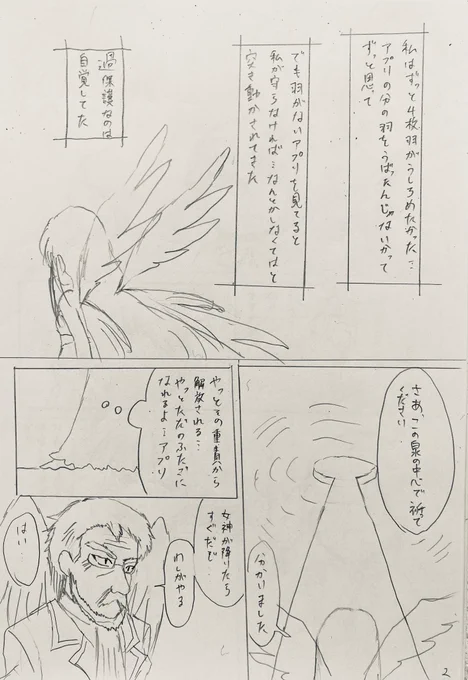 私はずっと4枚羽がうしろめたかった…
アプリの分の羽をうばったんじゃないかって
ずっと思って
でも羽がないアプリを見てると
私が守らなければ…なんとかしなくてはと
突き動かされてきた
過保護なのは
自覚してた
さあ、この泉の中心で祈って
ください
わかりました
やっとその重責から
解放される…
やっとただのふたごに
なれるよ…アプリ
女神が降りたち
すぐだぞ…
わしがやる
はい
2